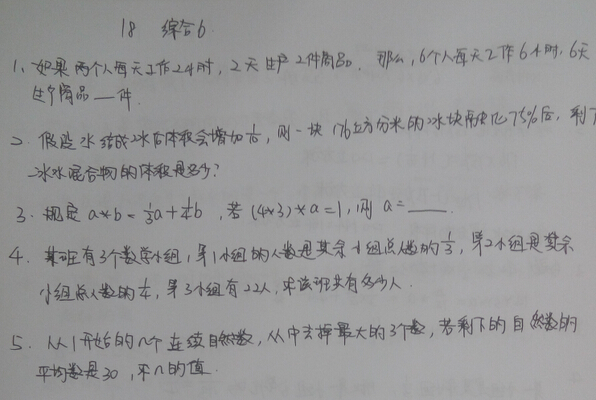 18 综合6
1、如果两个人每天工作2小时，2天生产2件商品。那么，6个人每天工作6小时，6天
生产商品__件.
2、假定水结成冰后体积会增加1/10，则一块176立方分米的冰块融化75%后，剩下
冰水混合物的体积是多少？
3、规定a*b=1/3a+1/4b，若(4*3)*a=1，则a=____.
4、某班有3个数学小组，第1小组的人数是其余小组总人数的1/3，第2小组是其余
小组总人数的1/4，第3小组有22人，求该班共有多少人.
5、从1开始的n个连续自然数，从中去掉最大的3个数，若剩下的自然数的
平均数是30，求n的值.